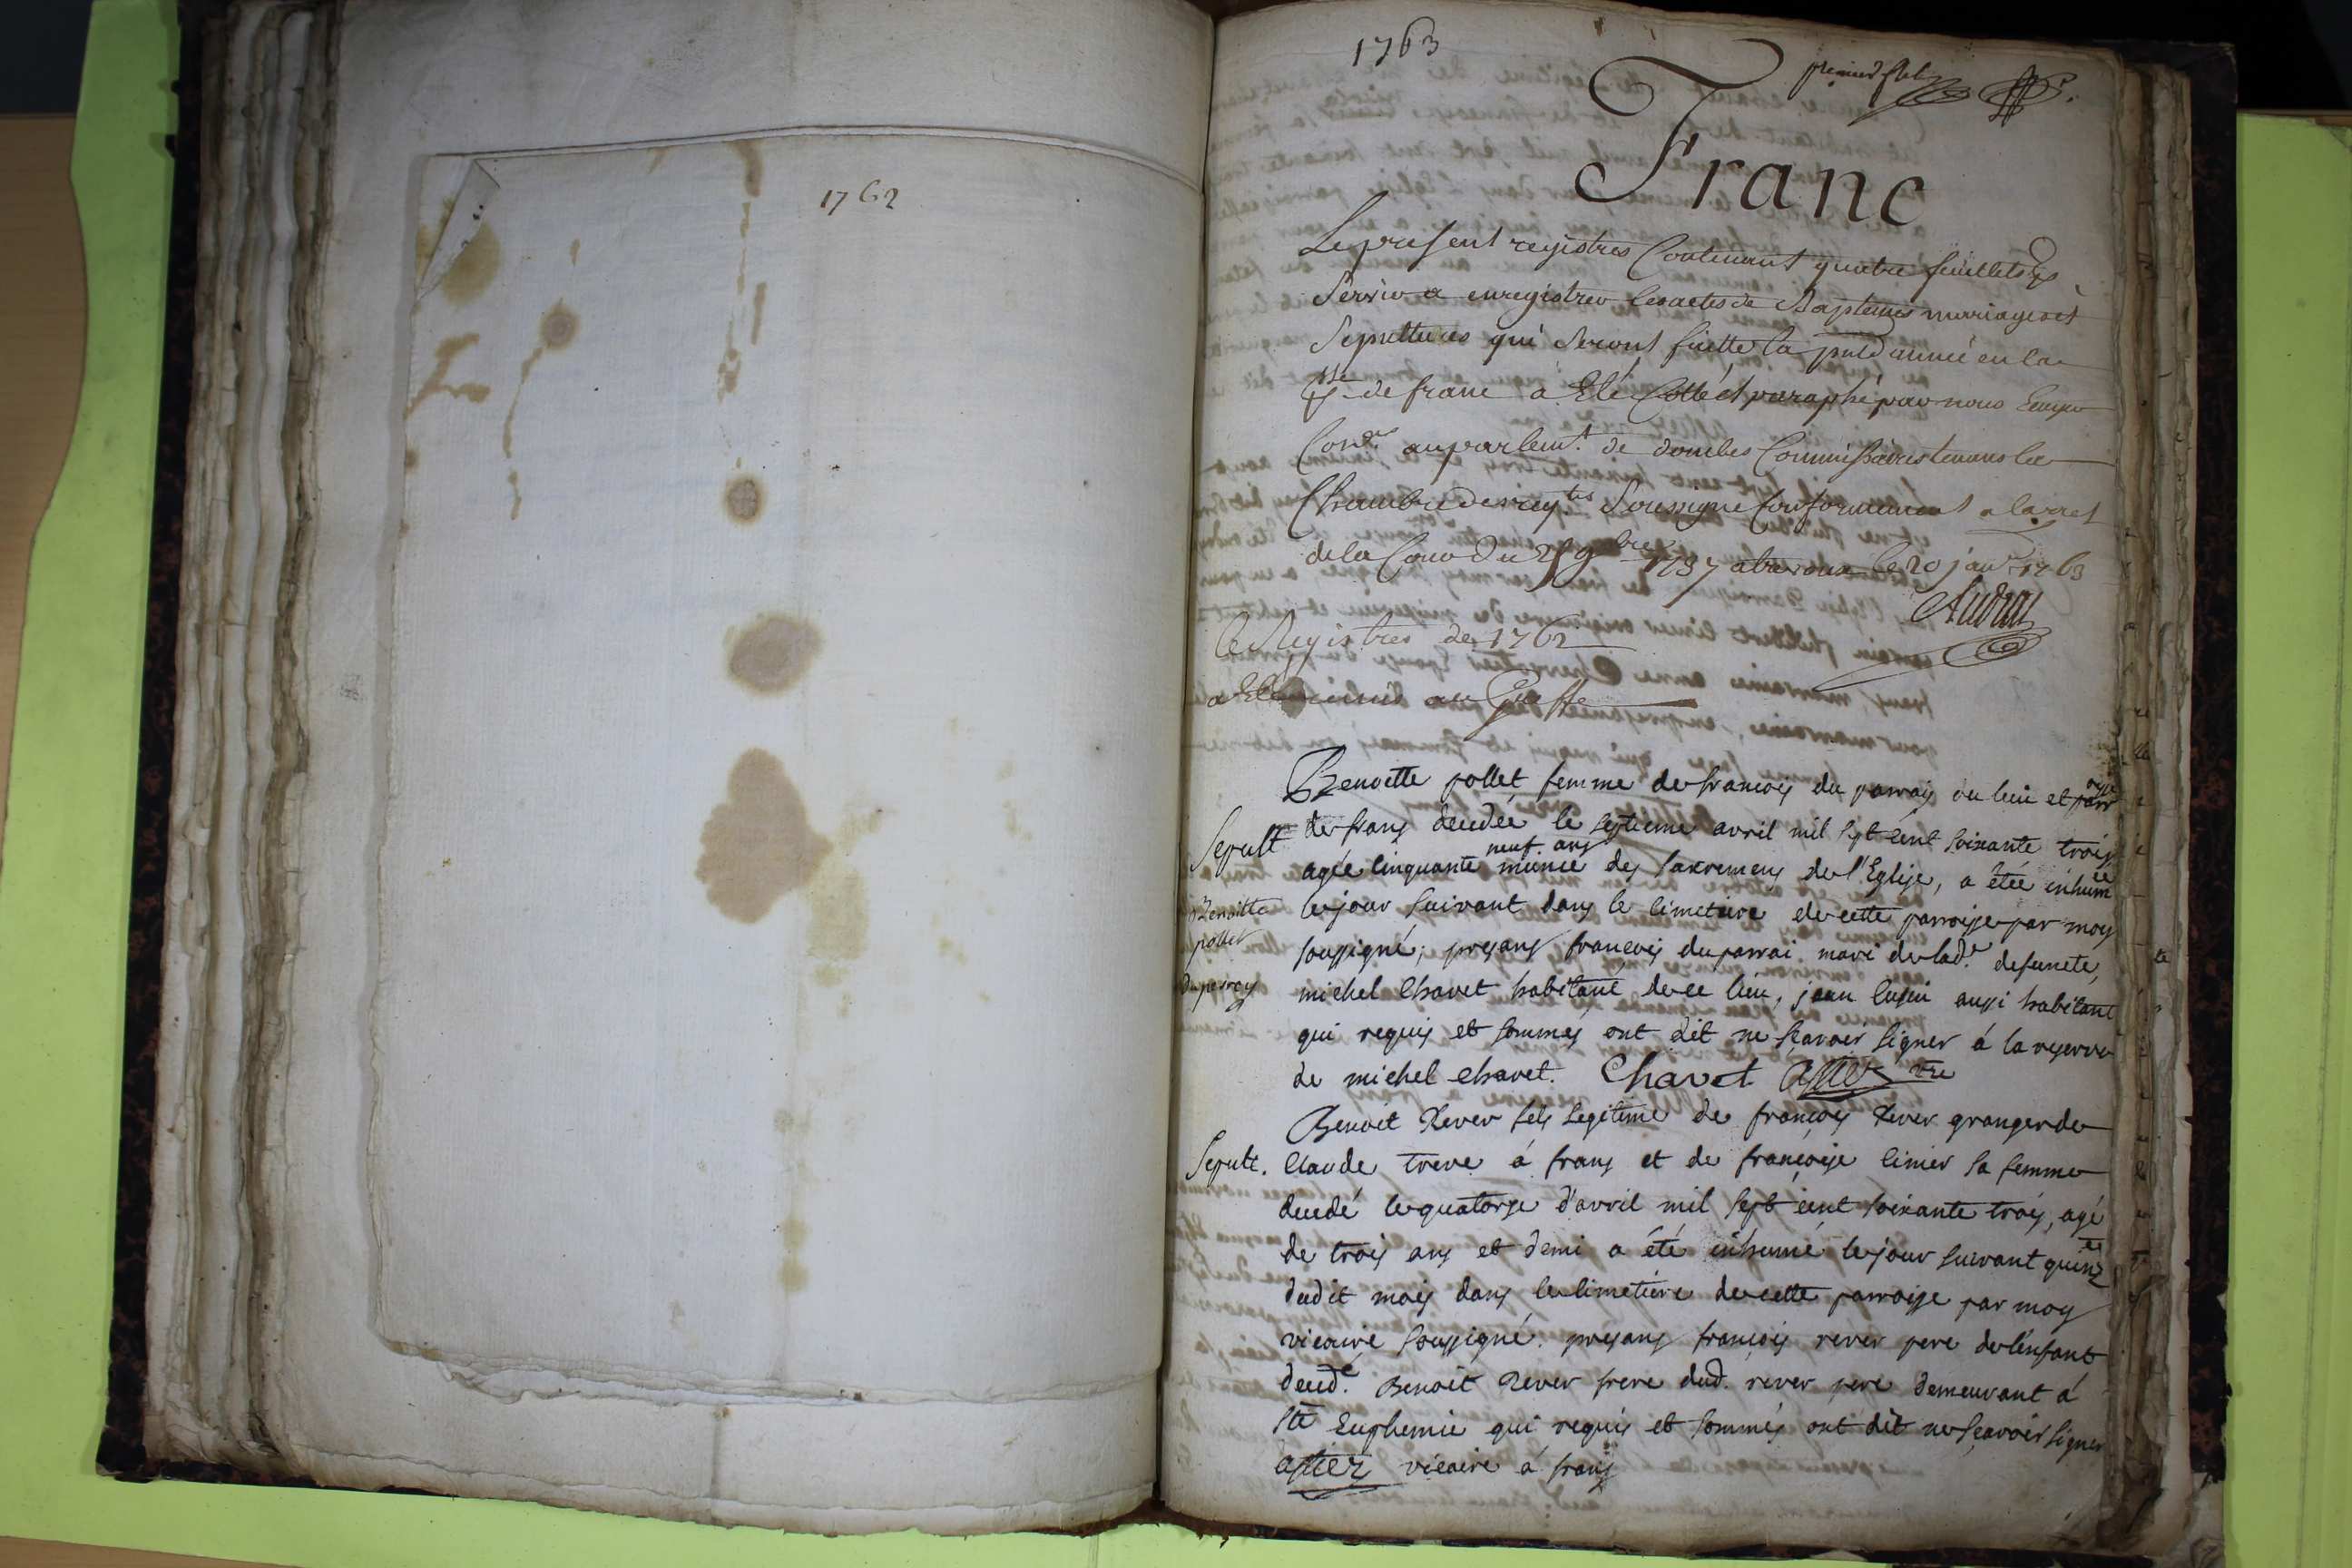 1762
1763
premier
Franc
Le present registres Contenant quatre feuillets
Servir a enregistrer les actes de Baptemes mariages et
Sepultures qui Seront faitte la pnte année en la
psse de franc a Eté Cotté et paraphé par nous Ecuyer
Coner au parlemt. de dombes Commissaires tenans la
Chambre des reqtes Soussigné Conformement a l'arret
de la Cour du 9bre 1737 a trevoux le 20 janr 1763
Audras
le Registres de 1762
a Eté remis au Greffe
Benoitte pollet femme de françois du parray de lieu et parroisse
Sepult de frans decedée le septieme avril mil sept cent soixante trois
agée cinquante neuf ans munie des sacremens de l'Eglise, a étée inhumée
Benoitte le jour suivant dans le cimetiere de cette parroisse par moy
pollet soussigné; presans francois duparrai mari de lade. defuncte,
duperray michel Chavet habitant de ce lieu, jean aussi habitant
qui requis et sommés ont dit ne sçavoir signer á la reserve
de michel chavet. Chavet astier vre
Benoit Rever fils legitime de françois Rever granger de
Sepult. Claude treve á frans et de françoise limer sa femme
decedé le quatorze d'avril mil sept cent soixante trois, agé
de trois ans et demi a été inhumé le jour suivant quinze
dudit mois dans le cimetiére de cette parroisse par moy
vicaire soussigné. presans françois rever pere de l'enfant
deced.é Benoit Rever frere dud. rever pere demeurant á
Ste Euphemie qui requis et sommés ont dit ne sçavoir signer
astier vicaire á frans